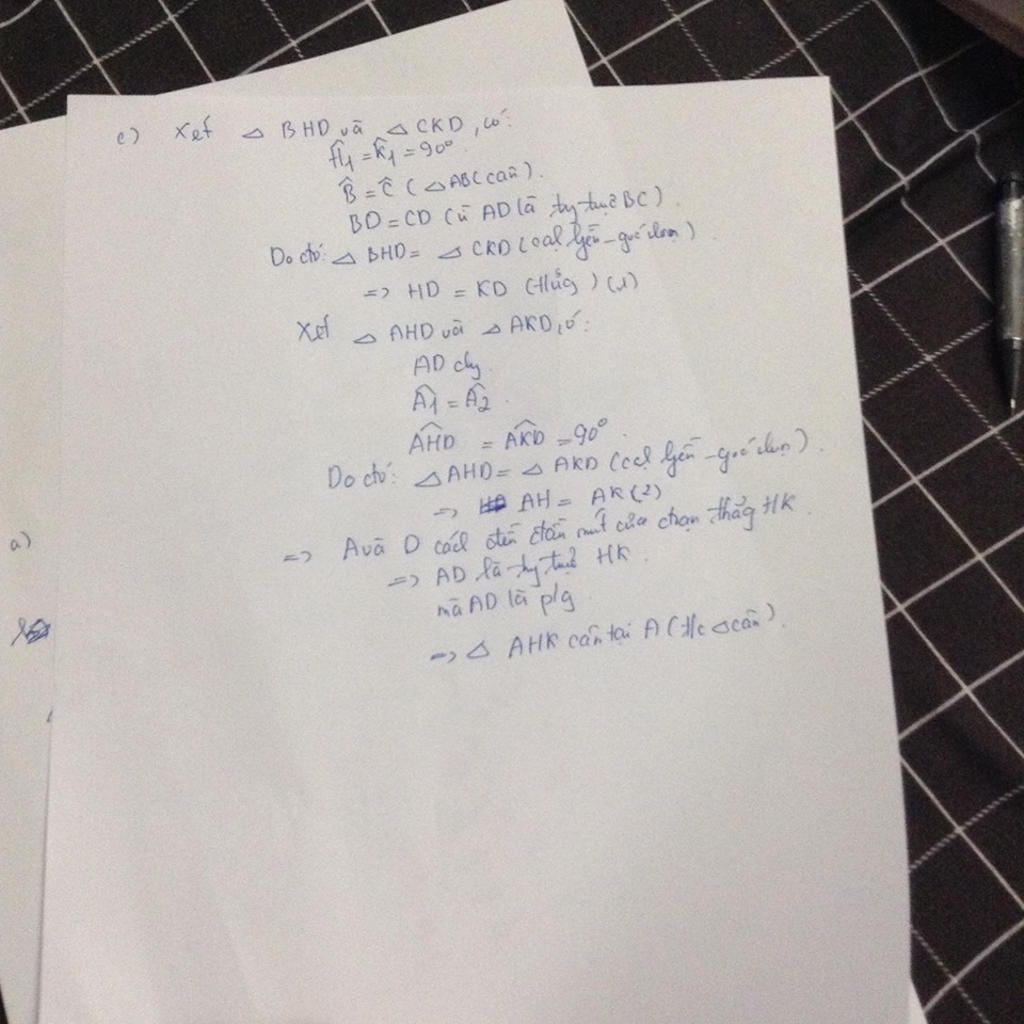 c) Xét △ BHD và △ CKD, có:
Ĥ1 = K̂1 = 90°.
B̂ = Ĉ (△ ABC cân).
BD = CD (vì AD là tg trực BC).
Do đó: △ BHD = △ CKD (cạh hyền - góc nhọn)
=> HD = KD (1)
Xét △ AHD và △ AKD, có:
AD chg
Â1 = Â2.
AHD = AKD = 90°.
Do đó: △ AHD = △ AKD (cạh hyền - góc nhọn).
=> AH = AK (2)
=> A và D cách đều mút của đoạn thẳg HK.
=> AD là tg trực HK.
mà AD là p/g
=> △ AHK cân tại A (t/c △ cân).
a)